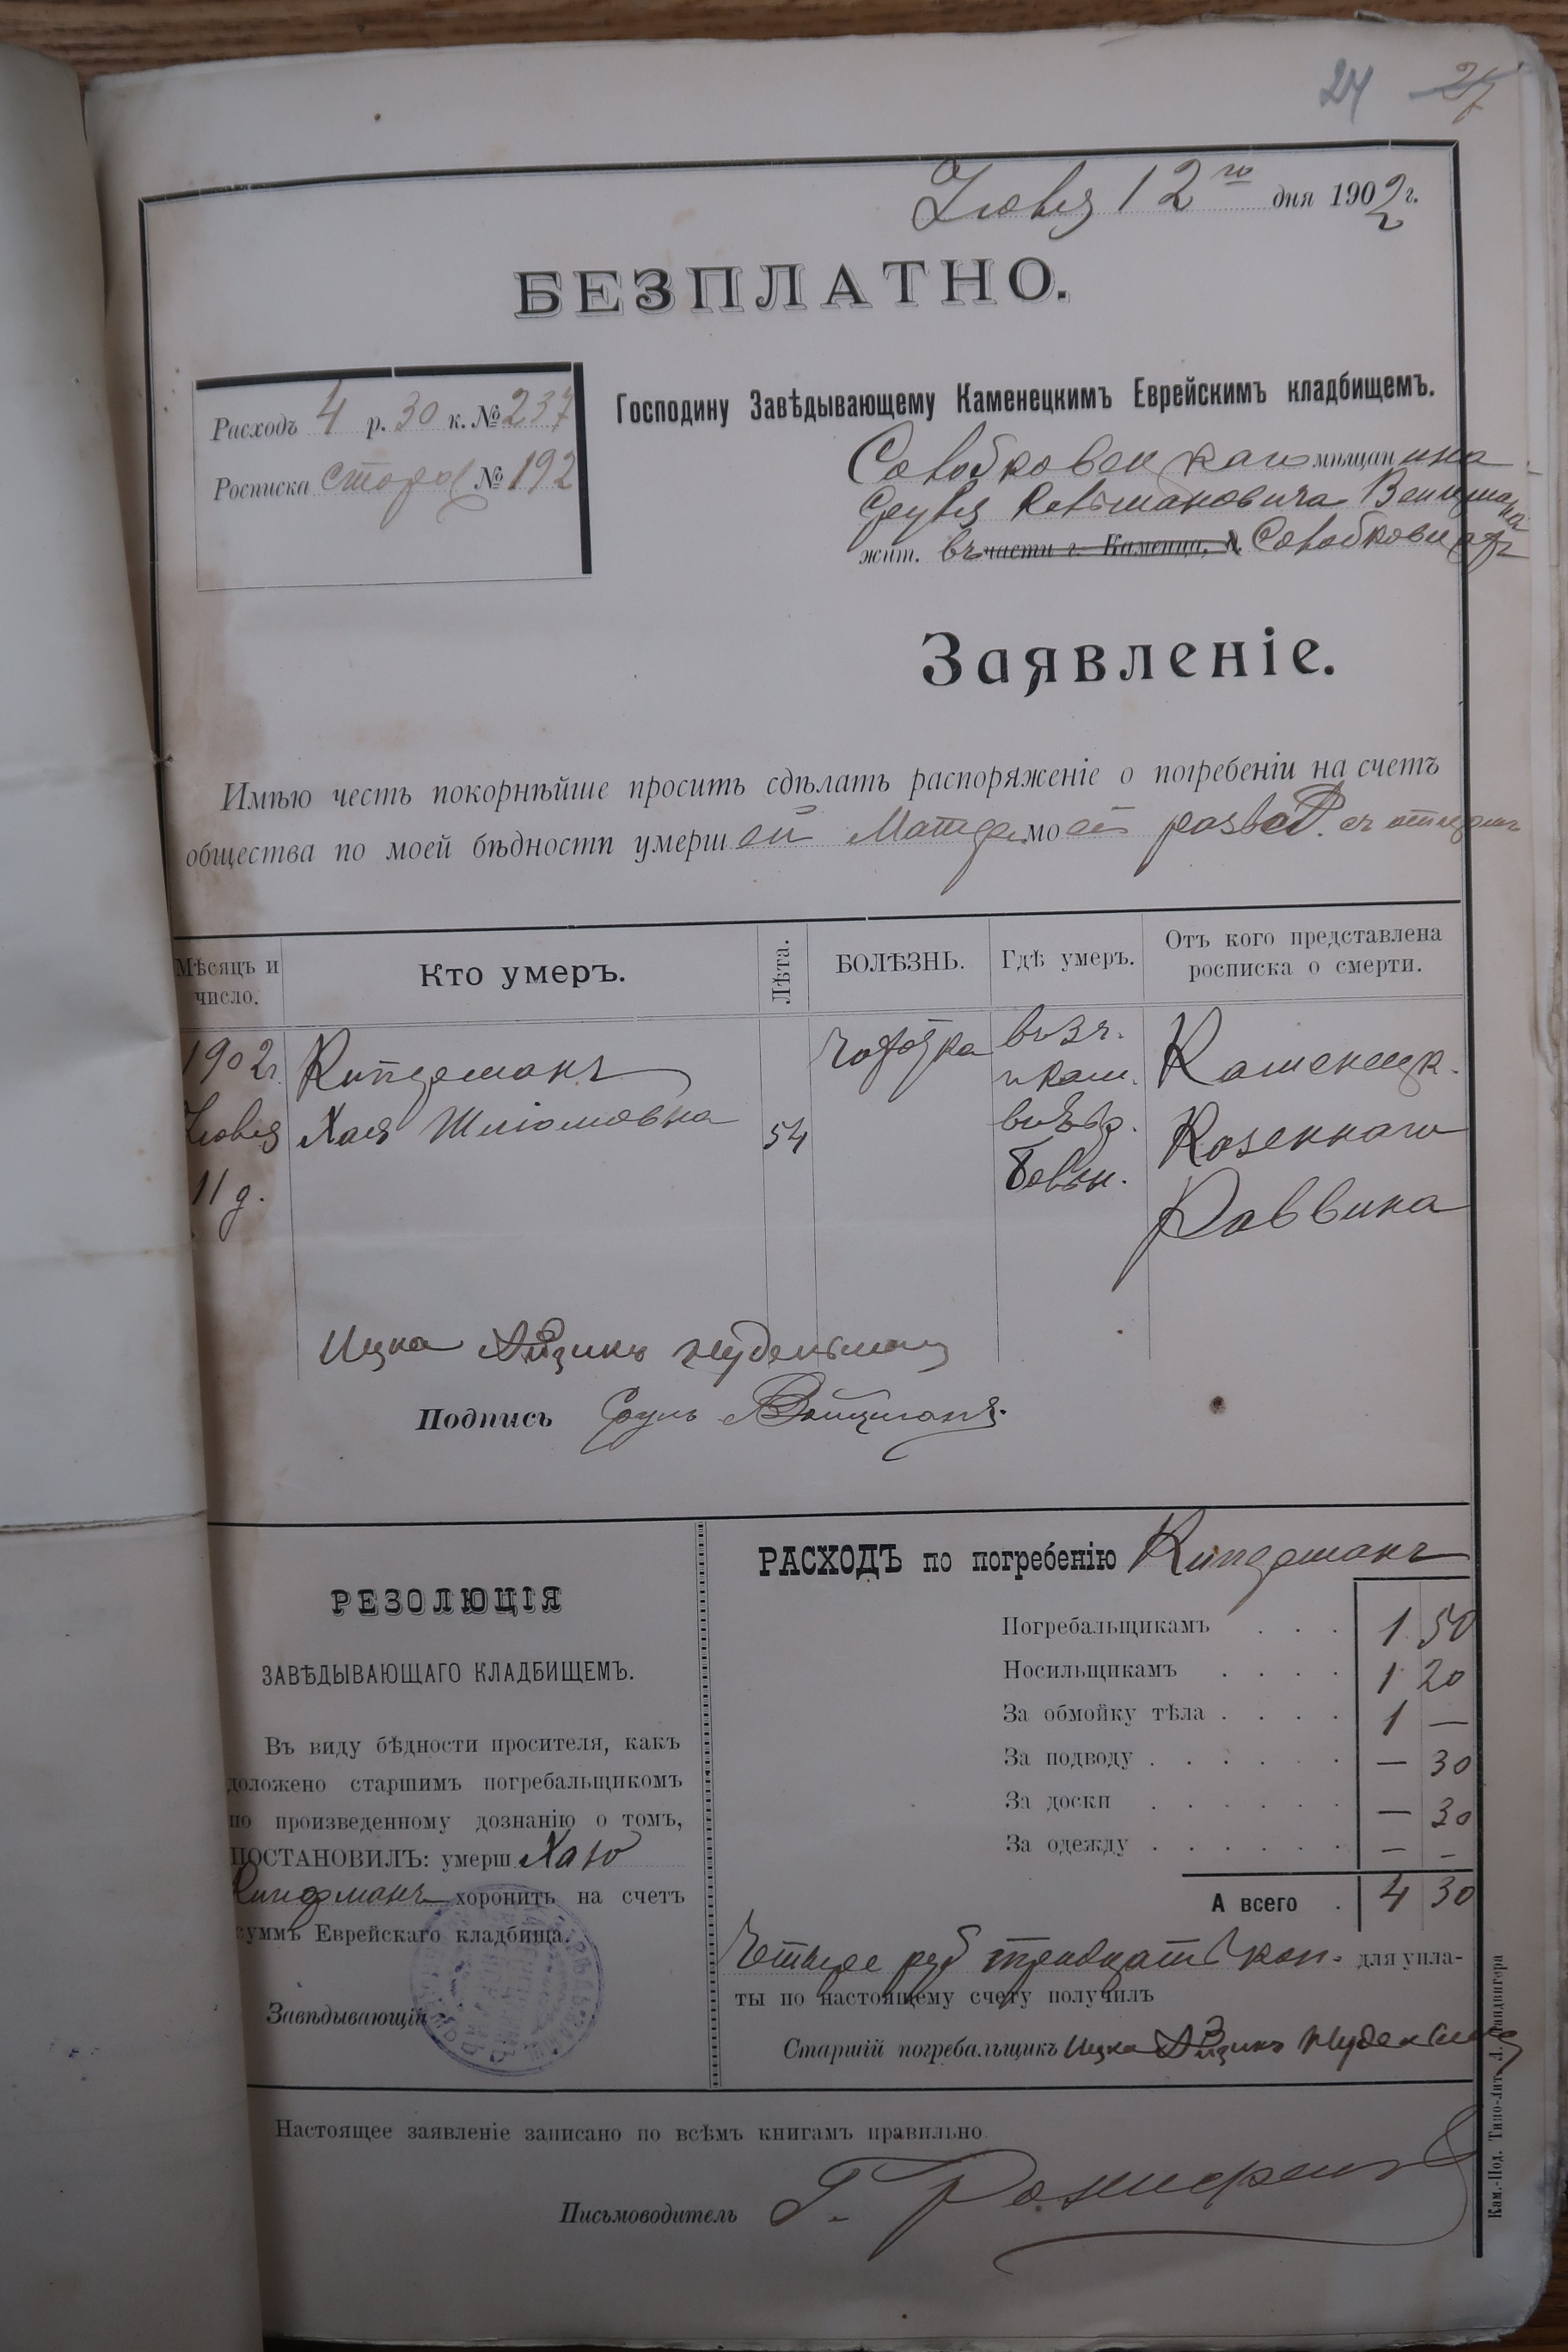 24 27
Іюля 12 го дня 1902 г.
БЕЗПЛАТНО.
Расходъ 4 р. 30 к. № 237
Росписка сторож № 192
Господину Завѣдывающему Каменецкимъ Еврейскимъ кладбищемъ.
Солобковецкаго мѣщанина
Сруля Кельмановича Вейцмана
жит. въ части г. Каменца, Солобковцахъ
Заявленіе.
Имѣю честь покорнѣйше просить сдѣлать распоряженіе о погребеніи на счетъ
общества по моей бѣдности умершей Матери моей развед. съ отцомъ
Мѣсяцъ и число.
Кто умеръ.
Лѣта.
БОЛѢЗНЬ.
Гдѣ умеръ.
Отъ кого представлена росписка о смерти.
1902 г.
Іюля
11 д.
Киперманъ
Хая Шліомовна
54
Чахотка
въ Зч.
г. Кам.
въ Евр.
Больн.
Каменецк.
Казеннаго
Раввина
Ицка Айзикъ Нудельман
Подпись Сруль Вайцманъ.
РЕЗОЛЮЦІЯ
ЗАВѢДЫВАЮЩАГО КЛАДБИЩЕМЪ.
Въ виду бѣдности просителя, какъ
доложено старшимъ погребальщикомъ
по произведенному дознанію о томъ,
ПОСТАНОВИЛЪ: умерш Хаю
Киперманъ хоронить на счетъ
суммъ Еврейскаго кладбища.
Завѣдывающій
РАСХОДЪ по погребенію Киперманъ
Погребальщикамъ . . . 1 50
Носильщикамъ . . . . 1 20
За обмойку тѣла . . . . 1 —
За подводу . . . . . . — 30
За доски . . . . . . — 30
За одежду . . . . . . — —
А всего . 4 30
Четыре руб тридцать коп. для упла-
ты по настоящему счету получилъ
Старшій погребальщикъ Ицка Айзикъ Нудельман
Настоящее заявленіе записано по всѣмъ книгамъ правильно.
Письмоводитель Г.
Кам.-Под. Типо-лит. Л. Ландвигера